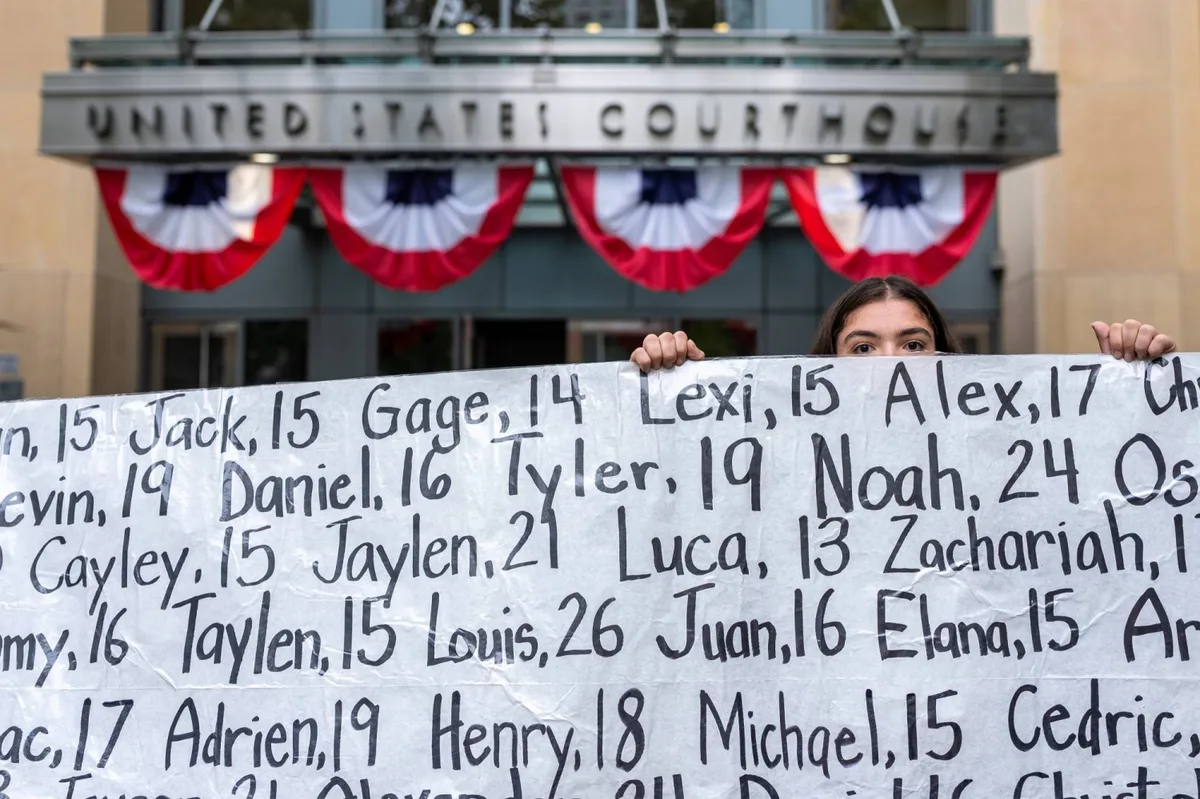 UNITED STATES COURTHOUSE
15 Jack, 15 Gage, 14 Lexi, 15 Alex, 17 Ch
evin, 19 Daniel, 16 Tyler, 19 Noah, 24 Os
Cayley, 15 Jaylen, 21 Luca, 13 Zachariah, 1
my, 16 Taylen, 15 Louis, 26 Juan, 16 Elana, 15 Ar
ac, 17 Adrien, 19 Henry, 18 Michael, 15 Cedric,